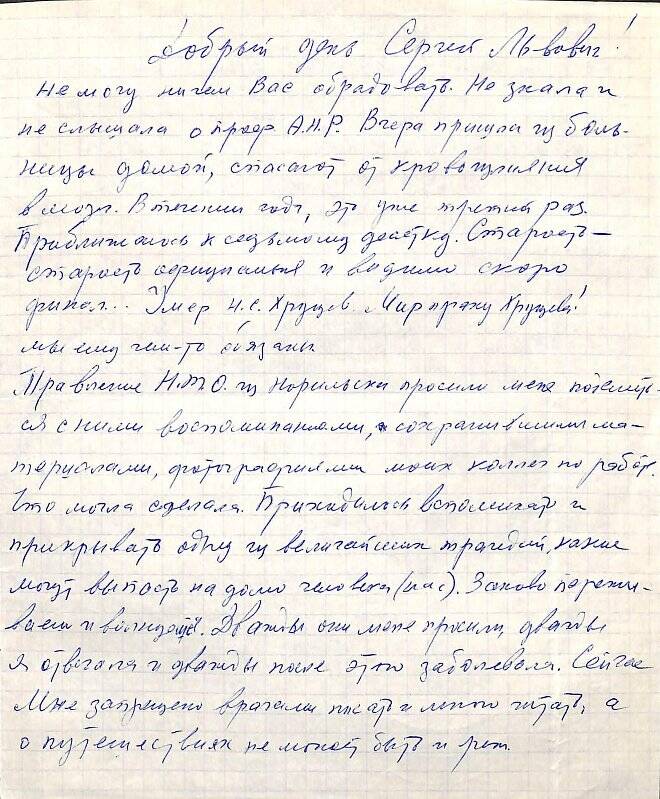 Добрый день Сергей Львович!
Не могу ничем Вас обрадовать. Не знала и
не слышала о проф. А.Н.Р. Вчера пришла из боль-
ницы домой, спасают от кровоизлияния
в мозг. В течении года, это уже третий раз.
Приближаюсь к седьмому десятку. Старость –
старость официальная и видимо скоро
финал... Умер Н.С. Хрущев. Мир праху Хрущева!
мы ему чем-то обязаны.
Правление Н.Т.О. из Норильска просили меня поделить-
ся с ними воспоминаниями, сохранившимися ма-
териалами, фотографиями моих коллег по работе.
Что могла сделала. Приходилось вспоминать и
прикрывать одну из величайших трагедий, какие
могут выпасть на долю человека (нас). Заново пережи-
ваем и волнуешь. Дважды они меня просили, дважды
я отвечала и дважды после этого заболевала. Сейчас
мне запрещено врачами писать и много читать, а
о путешествиях не может быть и речи.